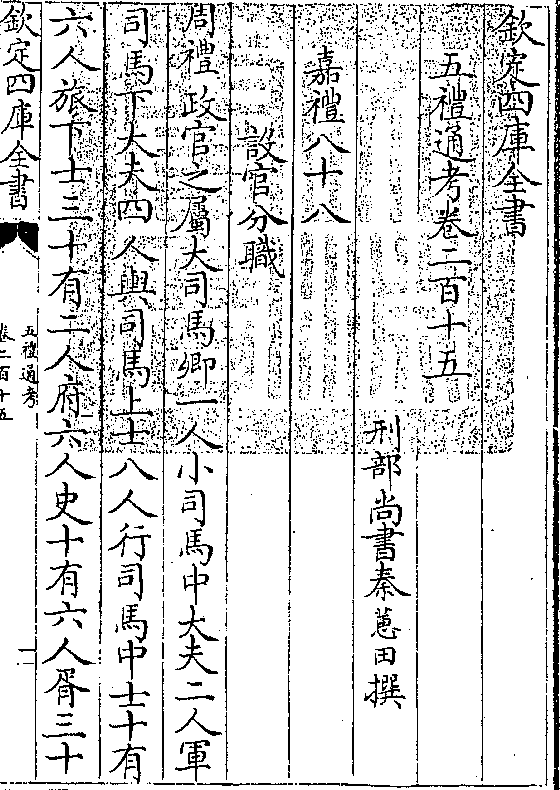 欽定四庫全書
五禮通考卷二百十五
刑部尚書秦蕙田撰
嘉禮八十八
設官分職
周禮政官之屬大司馬卿一人小司馬中大夫二人軍
司馬下大夫四人輿司馬上士八人行司馬中士十有
六人旅下士三十有二人府六人史十有六人胥三十
欽定四庫全書
五禮通考
卷二百十五
一